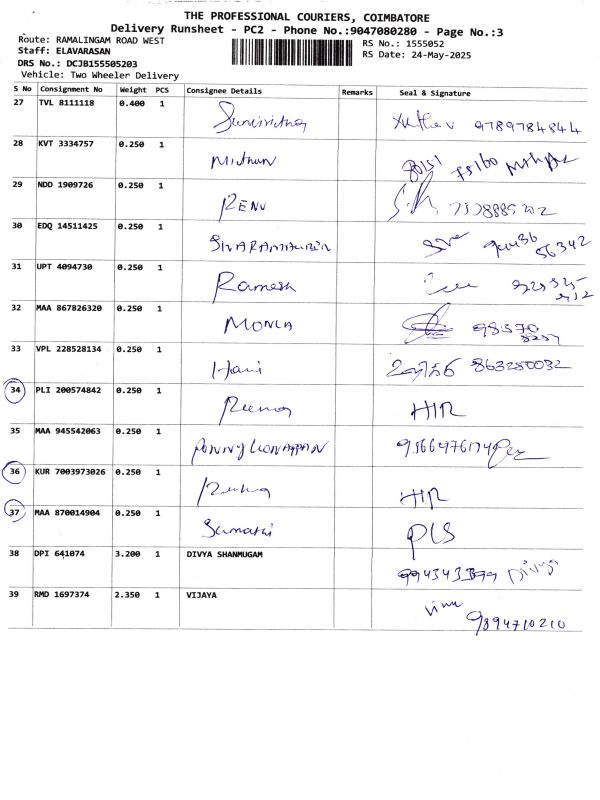 THE PROFESSIONAL COURIERS, COIMBATORE
Delivery Runsheet - PC2 - Phone No.:9047080280 - Page No.:3
Route: RAMALINGAM ROAD WEST
RS No.: 1555052
Staff: ELAVARASAN
RS Date: 24-May-2025
DRS No.: DCJB155505203
Vehicle: Two Wheeler Delivery
S No Consignment No Weight PCS Consignee Details Remarks Seal & Signature
27 TVL 8111118 0.400 1 9789784844
28 KVT 3334757 0.250 1 Mithun
29 NDD 1909726 0.250 1 RENU
30 EDQ 14511425 0.250 1
31 UPT 4094730 0.250 1 Ramesh
32 MAA 867826320 0.250 1
33 VPL 228528134 0.250 1 Hari
34 PLI 200574842 0.250 1 HR
35 MAA 945542063 0.250 1
36 KUR 7003973026 0.250 1 HR
37 MAA 870014904 0.250 1 Sumathi PLS
38 DPI 641074 3.200 1 DIVYA SHANMUGAM Divya
39 RMD 1697374 2.350 1 VIJAYA 9894710210